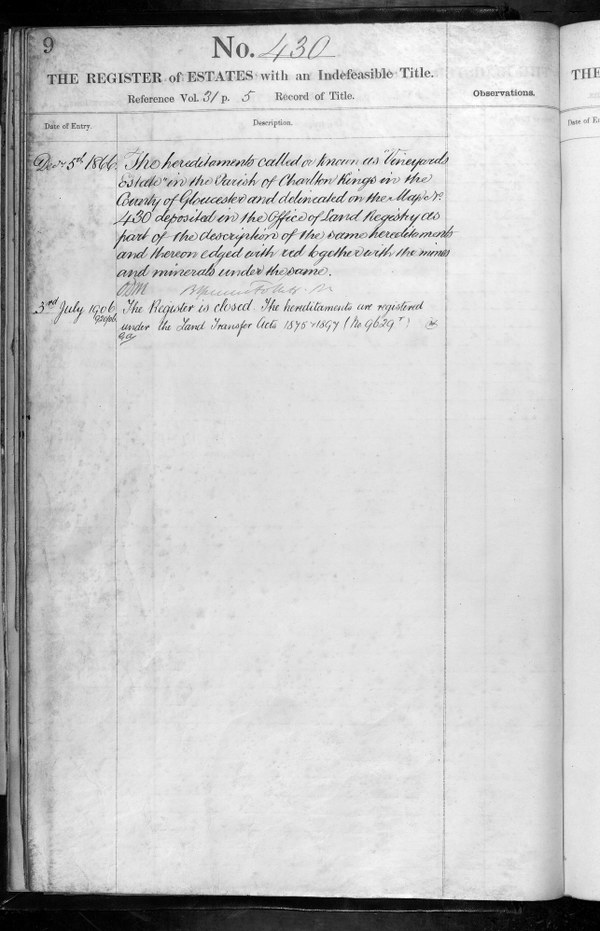 9
No. 430
THE REGISTER of ESTATES with an Indefeasible Title.
Reference Vol. 31 p. 5 Record of Title.
Observations.
Date of Entry
Description.
Decr 5th 1866. The hereditaments called or known as "Vineyards
Estate" in the Parish of Charlton Kings in the
County of Gloucester and delineated on the Map No.
430 deposited in the Office of Land Registry as
part of the description of the same hereditaments
and thereon edged with red together with the mines
and minerals under the same.
3rd July 1906 The Register is closed. The hereditaments are registered
under the Land Transfer Acts 1875 & 1897 (No. 9629)
THE
Date of En